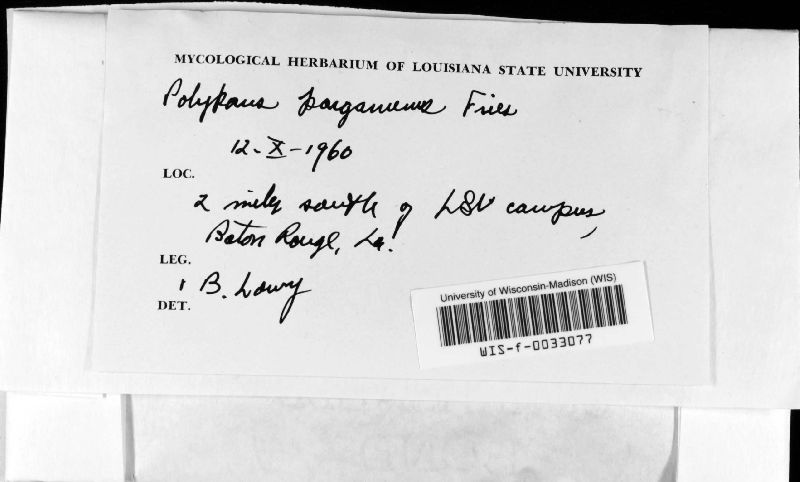 MYCOLOGICAL HERBARIUM OF LOUISIANA STATE UNIVERSITY
Polyporus pargamenus Fries
12-X-1960
LOC.
2 miles south of LSU campus,
Baton Rouge, La.
LEG.
B. Lowy
DET.
University of Wisconsin-Madison (WIS)
WIS-f-0033077